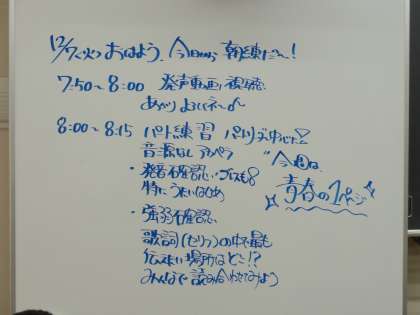 12/7(火) おはよう、今日から朝練だべ!
7:50~8:00 発声動画視聴
8:00~8:15 パート練習 パトリ中心に
音源なし アカペラ
・発音確認
特にうたいはじめ
・強弱確認
歌詞(セリフ)の中で最も
伝えたい場所はどこ!?
みんなで読み合わせてみよう
"今週は、
青春の1ページ"